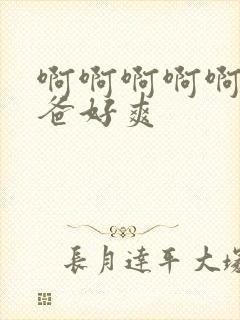 啊啊啊啊啊
爸好爽
長月達平大塚